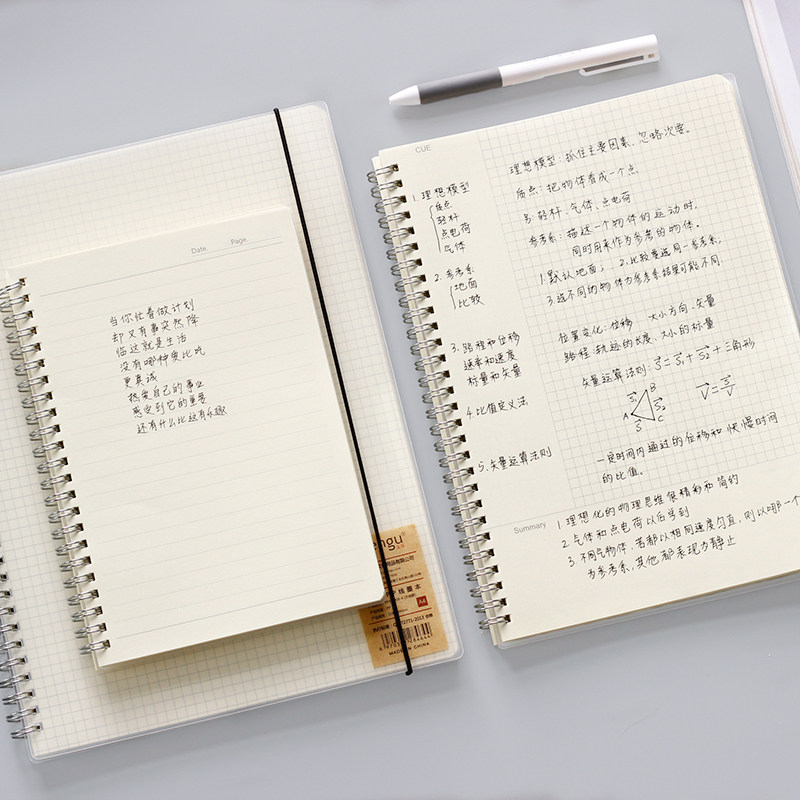 Date.
Page.
当你忙着做计划
却又有事突然降
临这就是生活
没有哪种度比吃
更真诚
热爱自己的事业
感受到它的重要
还有什么比这有乐趣
engu
用品有限公司
线圈本
A4
QB/T1438
MADE IN CHINA
CUE
1. 理想模型
质点
轻杆
点电荷
气体
2. 参考系
地面
比较
3. 路程和位移
速率和速度
标量和矢量
4. 比值定义法
5. 矢量运算法则
理想模型：抓住主要因素，忽略次要。
质点：把物体看成一个点
轻杆、气体、点电荷
参考系：描述一个物体的运动时，
同时用来作为参考的物体。
1. 默认地面； 2. 比较量选同一参考系，
3. 选不同的物体为参考系结果可能不同
位置变化：位移 大小方向、矢量
路程：轨迹的长度、大小的标量
矢量运算法则：S⃗=S⃗₁+S⃗₂+三角形
S⃗₁ B S⃗₂
A S⃗ C
V⃗=S⃗/V
一定时间内通过的位移和快慢时间
的比值。
Summary
1. 理想化的物理思维很精彩和简约
2. 气体和点电荷以后学到
3. 不同气物体，若都以相同速度匀直，则以哪一个
为参考系，其他都表现为静止